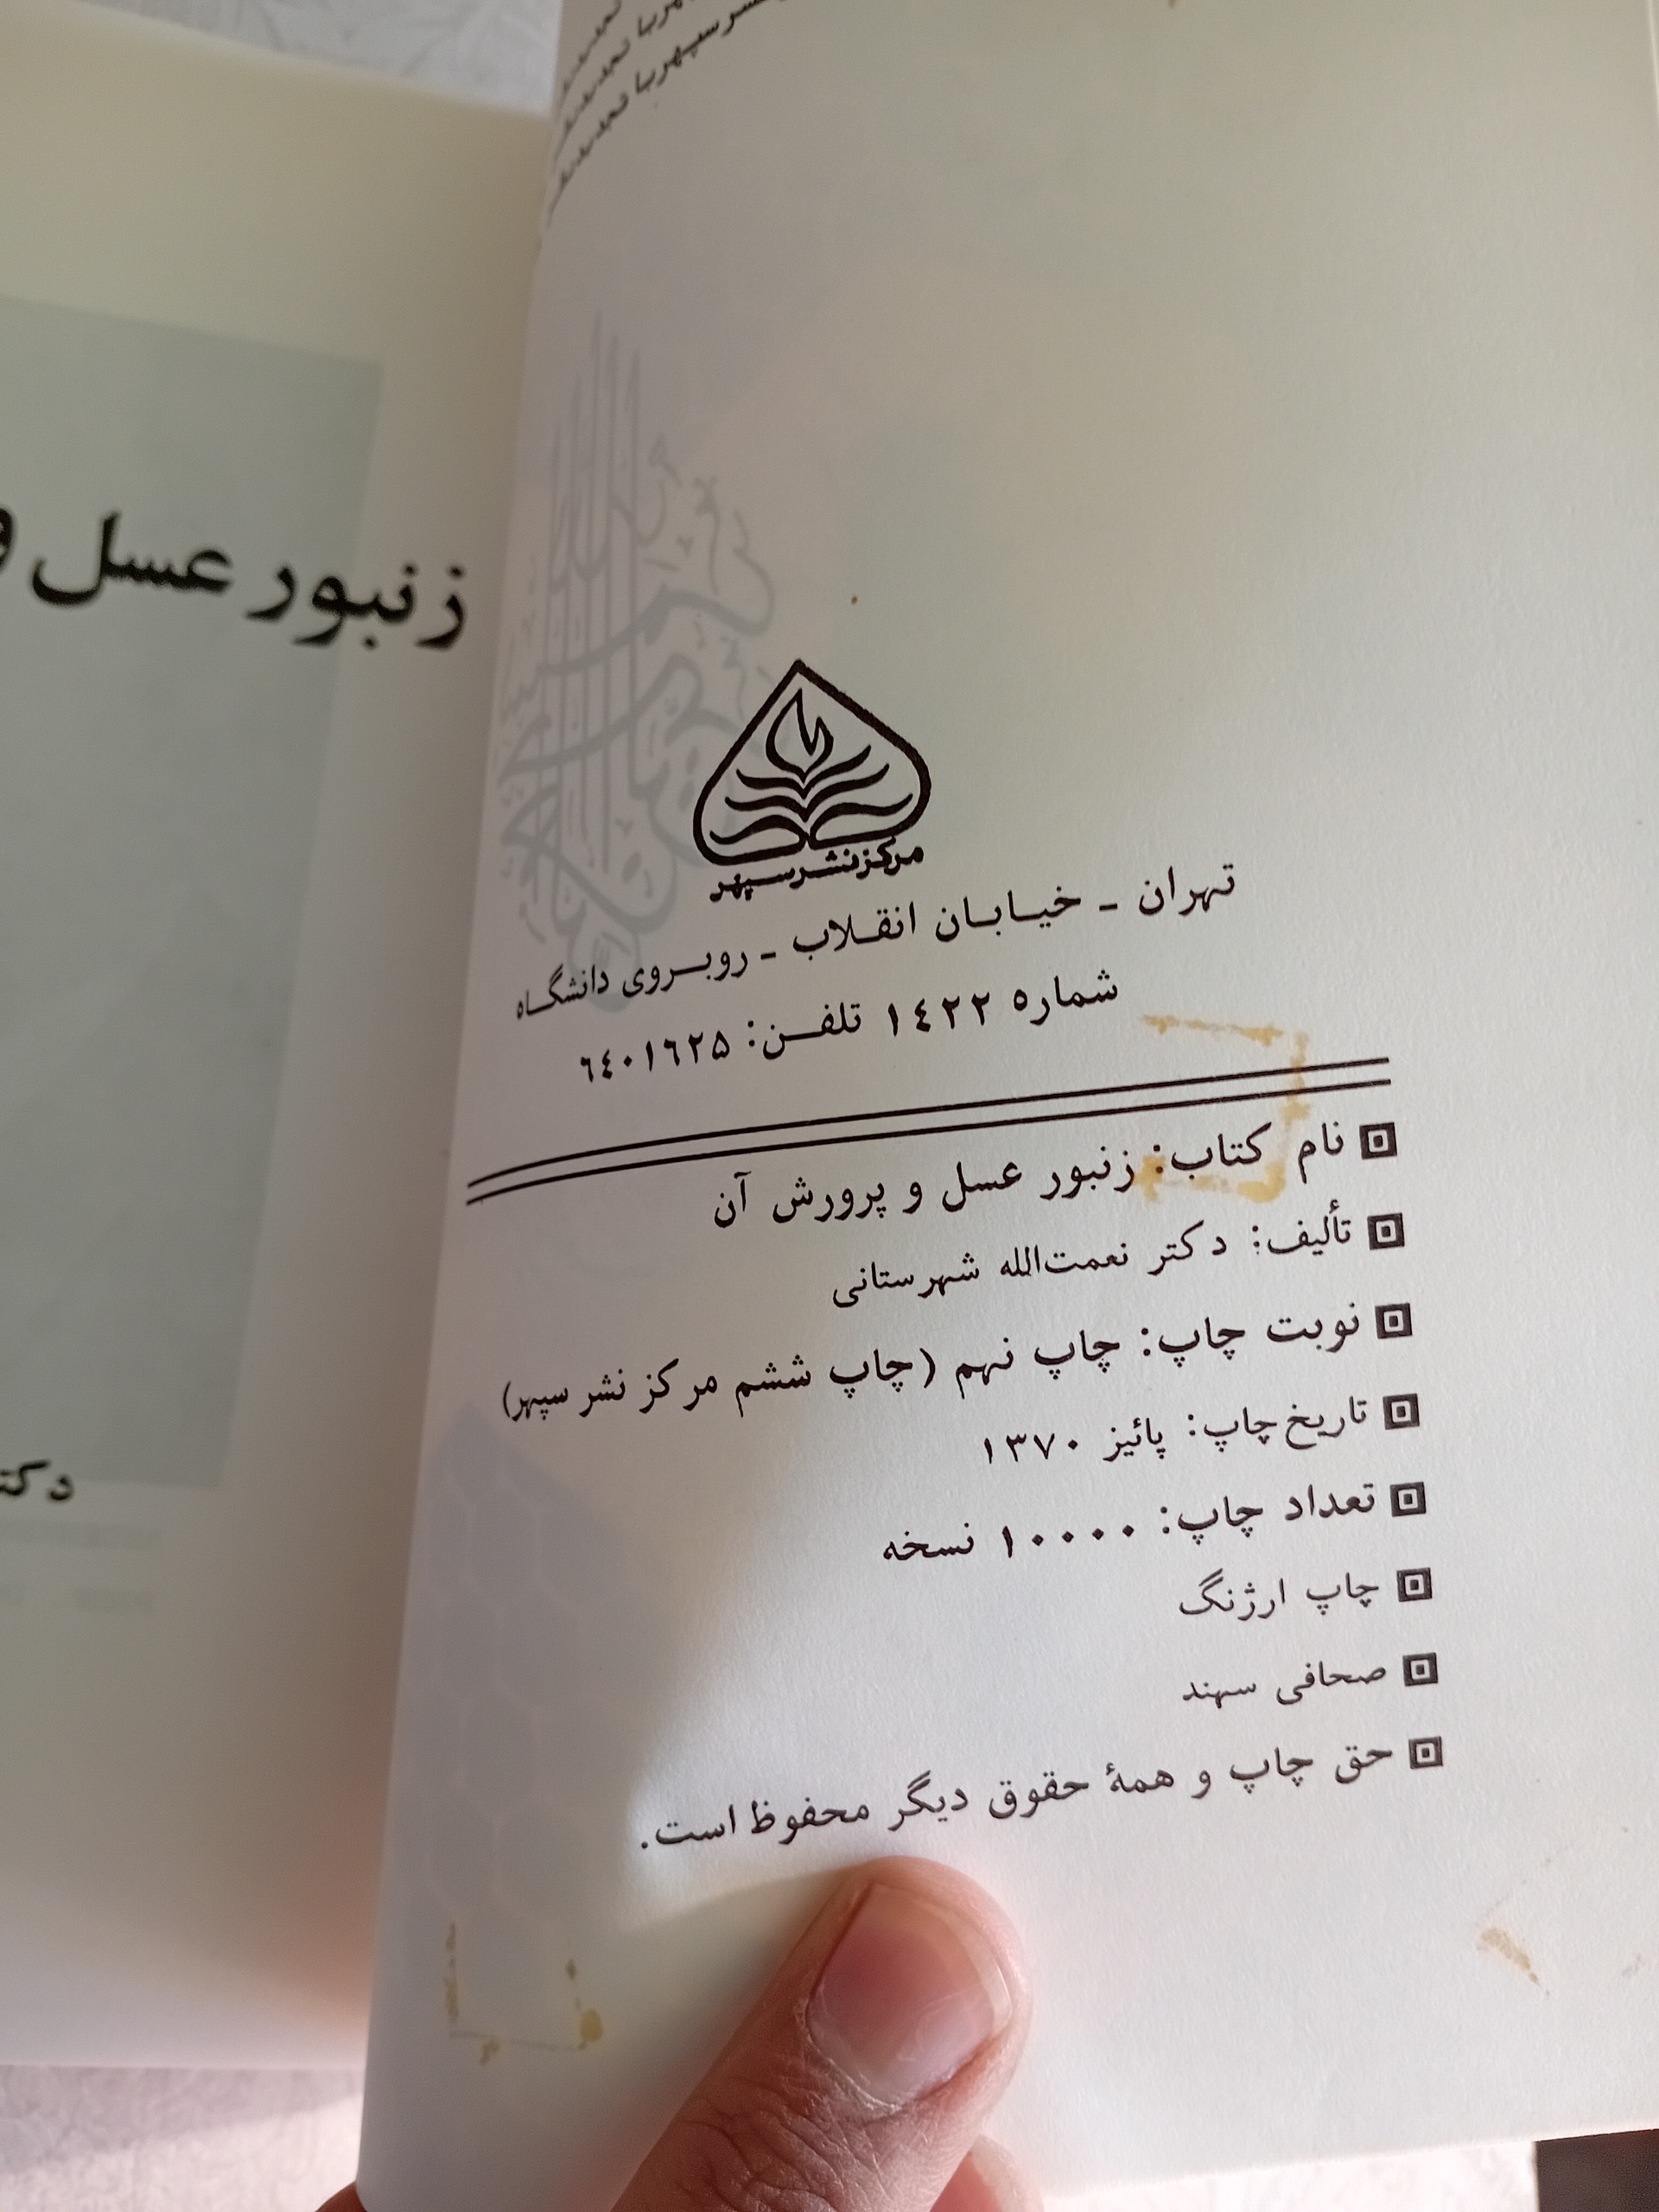 مرکز نشر سپهر
تهران ـ خیابان انقلاب ـ روبروی دانشگاه
شماره ۱٤۲۲ تلفن: ٦٤۰۱٦۲۵
نام کتاب: زنبور عسل و پرورش آن
تألیف: دکتر نعمت‌الله شهرستانی
نوبت چاپ: چاپ نهم (چاپ ششم مرکز نشر سپهر)
تاریخ چاپ: پائیز ۱۳۷۰
تعداد چاپ: ۱۰۰۰۰ نسخه
چاپ ارژنگ
صحافی سهند
حق چاپ و همهٔ حقوق دیگر محفوظ است.
زنبور عسل و